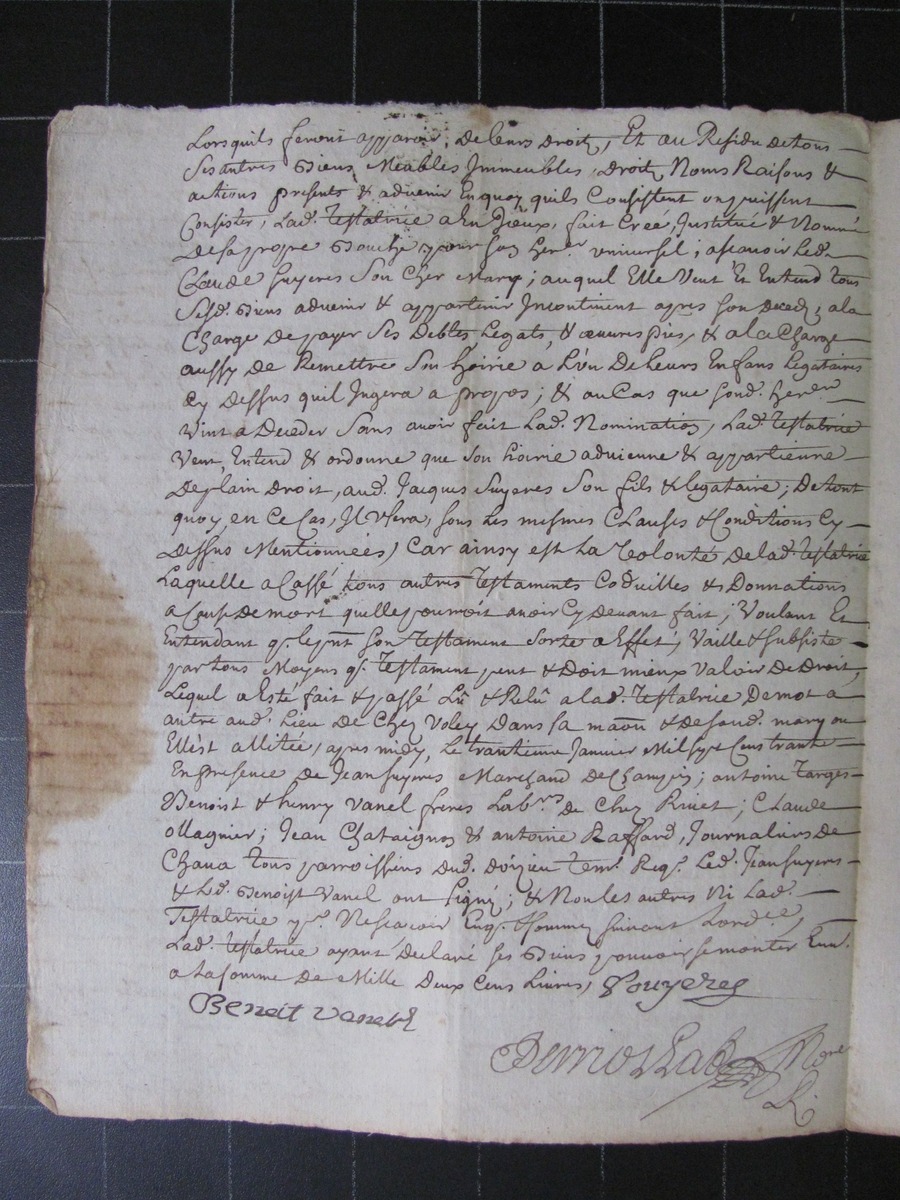 Lorsquils feront apparoir, de leurs droits, Et au Residu de tous
Ses autres biens Meubles Immeubles, droits Noms Raisons &
actions presents & advenir En quoy quils Consistent ou puissent
Consister, Lad. Testatrice a fait Creé, Institué & Nommé
de sa propre bouche pour son herer. universel; ascavoir Led.
Claude fuyeres Son Cher Mary; auquel Elle Veut Et Entend tous
Sesd. biens advenir & appartenir Incontinent apres son deced, a la
Charge de payer Ses Debtes Legats, & œuvres pies, & a la Charge
aussy de Remettre Son hoirie a L'un De Leurs Enfans Legataires
Cy Dessus quil Jugera a propos; & au Cas que sond. herer.
Vint a Deceder Sans avoir fait Lad. Nomination, Lad. Testatrice
Veut, Entend & ordonne que son hoirie advienne & appartienne
De plain Droit, aud. Jacques fuyeres Son fils & legataire; De tout
quoy, en Ce Cas, Il Usera, sous les mesmes Clauses & Conditions Cy
dessus Mentionnées, Car ainsy est La Volonté de lad. Testatrice
Laquelle a Cassé tous autres Testaments Codicilles & Donnations
a Cause De mort quelle pourroit avoir Cy devant fait; Voulant Et
Entendant q. le pnt son Testament Sorte a Effet, Vaille & subsiste
par tous Moyens q. Testament peut & Doit mieux Valoir De Droit,
Lequel a Esté fait & passé Lû & Relû a lad. Testatrice De mot a
autre aud. Lieu De Chez Voley Dans sa maon & de sond. mary ou
Elle est allitée, apres midy, Le trantieme Janvier Mil sept Cens trante
En presence de Jean fuyeres Marchand de ; antoine Farges
Benoist & henry Vanel freres Labrs de Chez Rivet; Claude
Magnier; Jean Chataignon & antoine Raffard, Journaliers de
Chava tous parroissiens dud. doizieu tem. Reqs. Led. Jean fuyeres
& Led. Benoist Vanel ont signé; & Non les autres Ni Lad.
Testatrice pr. Ne scavoir Enq. & somme suivant Lordce,
Lad. Testatrice ayant Declaré ses biens pouvoir se monter Env.
a La somme De Mille Deux Cens Livres, fouyeres
Benoit Vanel